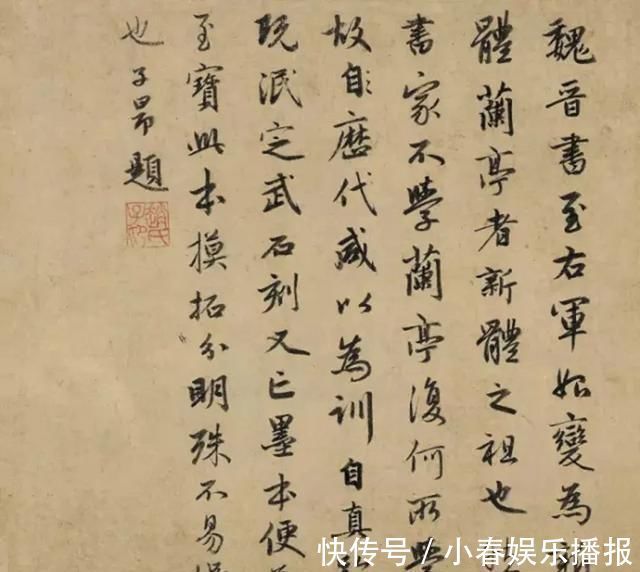 魏晋書至右軍始變為新
體蘭亭者新體之祖也
書家不學蘭亭復何所學
故自歷代咸以為訓自真
既泯定武石刻又亡墨本便
至寶此本摸拓分明殊不易
也子昂題
趙氏子昂
快传号/小春娱乐播报